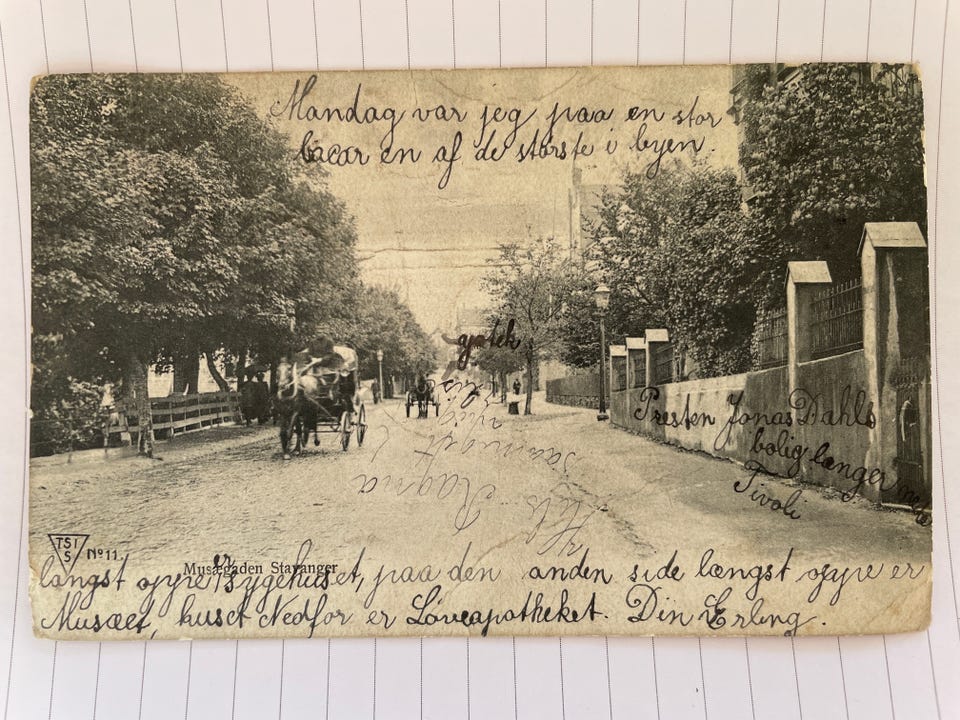 Mandag var jeg paa en stor
bacar en af de største i byen.
Presten Jonas Dahls
bolig længer nede
Tivoli
Hils Ragna
TSI
S
No 11.
Musægaden Stavanger
er
langst oppe Sygehuset, paa den anden side længst oppe er
Musæet, huset Nedfor er Løveapotheket. Din Erling.